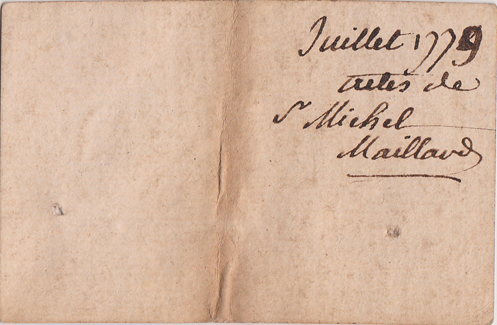 Juillet 1779
titles de
St Michel
Maillard